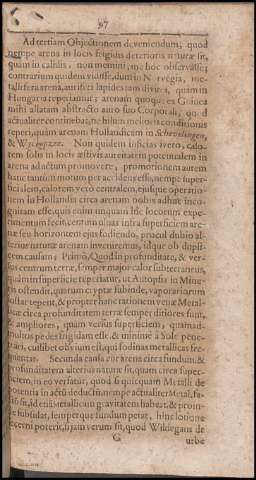 97
Ad tertiam Objectionem deveniendum, quod
nempe arena in locis frigidis deterioris naturæ sit,
quam in calidis, non memini, me hoc observasse;
contrarium quidem vidisse, dum in Norvegia, me-
tallifera arena, auriferi lapides tam divites, quam in
Hungaria reperiantur; arenam quoque ex Guinea
mihi allatam abstracto auro suo Corporali, quod
actualiter continebat, ne hilum melioris conditionis
reperi, quam arenam Hollandicam in Schevelingen,
&
Non quidem inficias ivero, calo-
rem solis in locis æstivis auri eitatem potentialem in
arena ad actum promovere, promotionem autem
hanc tantùm motum per accidens esse, nempe super-
ficialem, calorem verò centralem, ejusque operatio-
nem in Hollandis circa arenam nobis adhuc inco-
gnitam esse, quis enim unquam hîc locorum expe-
rimentum fecit, cernendi an infra superficiem are-
næ seu horizontem ejus fodiendo, procul dubio al-
terius naturæ arenam inveniremus, idque ob dupli-
cem causam; Primò, Quod in profunditate, & ver-
sus centrum terræ, semper major calor subterraneus,
quàm in superficie reperiatur, ut Autopsia in Mine-
ris ostendit, quarum cryptæ subinde, vaporariorum
instar tepent, & propter hanc rationem venæ Metal-
licæ circa profunditatem terræ semper ditiores sunt,
& ampliores, quam versus superficiem, quàm ad
multos pedes frigidam esse, & minimè à Sole pene-
trari, cuilibet obvium est, qui fodinas metallicas fre-
quentat. Secunda causa cur arena circa fundum, &
profunditatem alterius naturæ sit, quam circa super-
ficiem, in eo versatur, quod si quicquam Metalli de
potentia in actu deductū, nempe actualiter Metal. fa-
ctū sit, id etiā Metallicam gravitatem habeat, & proin-
de subsidat, semperque fundum petat, hinc lotione
decerni poterit, si jam verum sit, quod Wildegans de
G
urbe